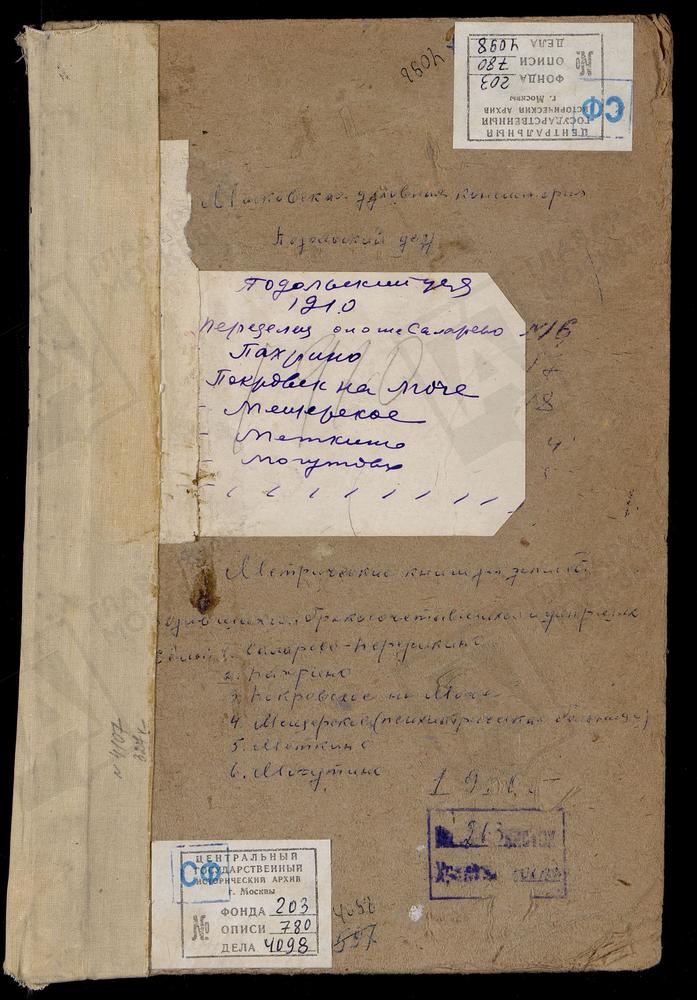 4098
ЦЕНТРАЛЬНЫЙ
ГОСУДАРСТВЕННЫЙ
ИСТОРИЧЕСКИЙ АРХИВ
г. Москвы
СФ
№
ФОНДА 203
ОПИСИ 780
ДЕЛА 4098
Московская духовная консистория
Подольский уезд
Подольский уезд
1910
Переделец Саларево №16
Пахрино
Покровск на Моче
- Мещерское
- Меткино
- Могутово
Метрические книги для записи
бракосочетавшихся и умерших
Саларево-
2. Пахрино
3. Покровское на Моче
4. Мещерское (психиатрическая больница)
5. Меткино
6. Могутино
№ 4107
263
ЦЕНТРАЛЬНЫЙ
ГОСУДАРСТВЕННЫЙ
ИСТОРИЧЕСКИЙ АРХИВ
г. Москвы
СФ
№
ФОНДА 203
ОПИСИ 780
ДЕЛА 4098